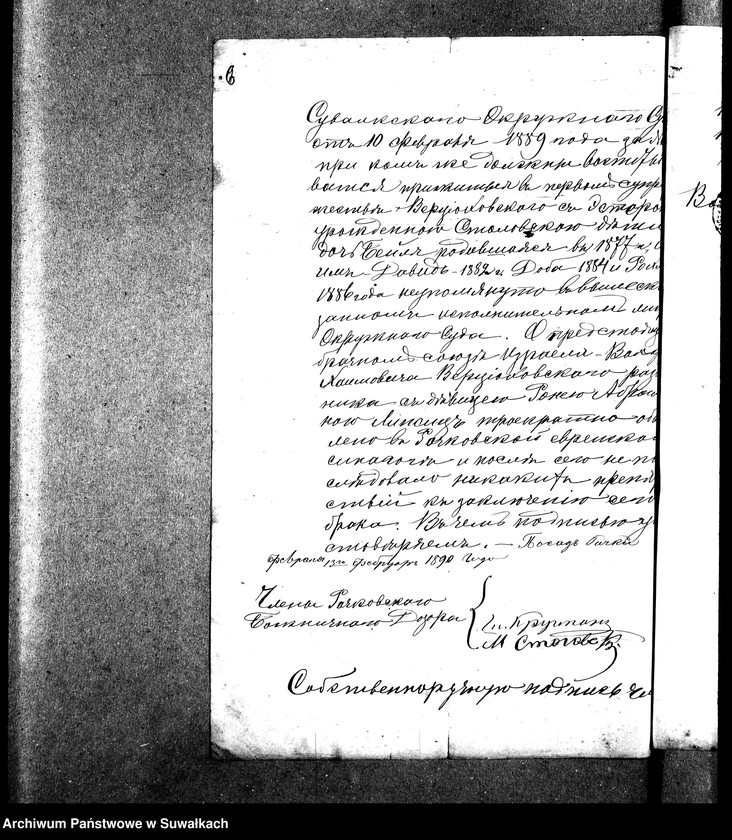 6
Сувалкскаго Окружнаго Су
отъ 10 Февраля 1889 года за №
при комъ же должны воспиты
ватся прижитыя въ первомъ супр
жествѣ Вержболовскаго съ Эстерою
урожденною Столовскою дѣти
дочь Бейля родившаяся въ 1877 г.,
Давидъ - 1882 г. Доба 1884 и
1886 года неупомянуто въ вышеска
занномъ исполнительномъ ли
Окружнаго Суда. О предстоящ
брачномъ союзѣ Израеля -
Хаимовича раз
ника съ дѣвицею Абрам
ною троекратно объ
лено въ Рачковской еврейско
синагогѣ и послѣ сего не по
слѣдовало никакихъ препя
ствій къ заключенію сего
брака. Въ чемъ подписью удо
стовѣряемъ. - Посадъ Рачки
Февраля 13 1890 года
Члены Рачковскаго
Божничнаго Дозора
Собственноручную подпись Чл
Archiwum Państwowe w Suwałkach